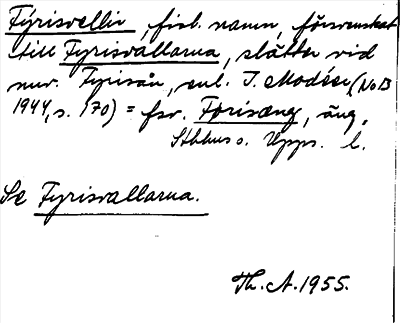 Fýrisvellir, fisl. namn, försvenskat
till Fyrisvallarna, slätten vid
nuv. Fyrisån, enl. I. Modéer (NoB
1944, s. 170) = fsv. Forisæng, äng,
Sthhus o. Upps. l.
Se Fyrisvallarna.
Th. A. 1955.